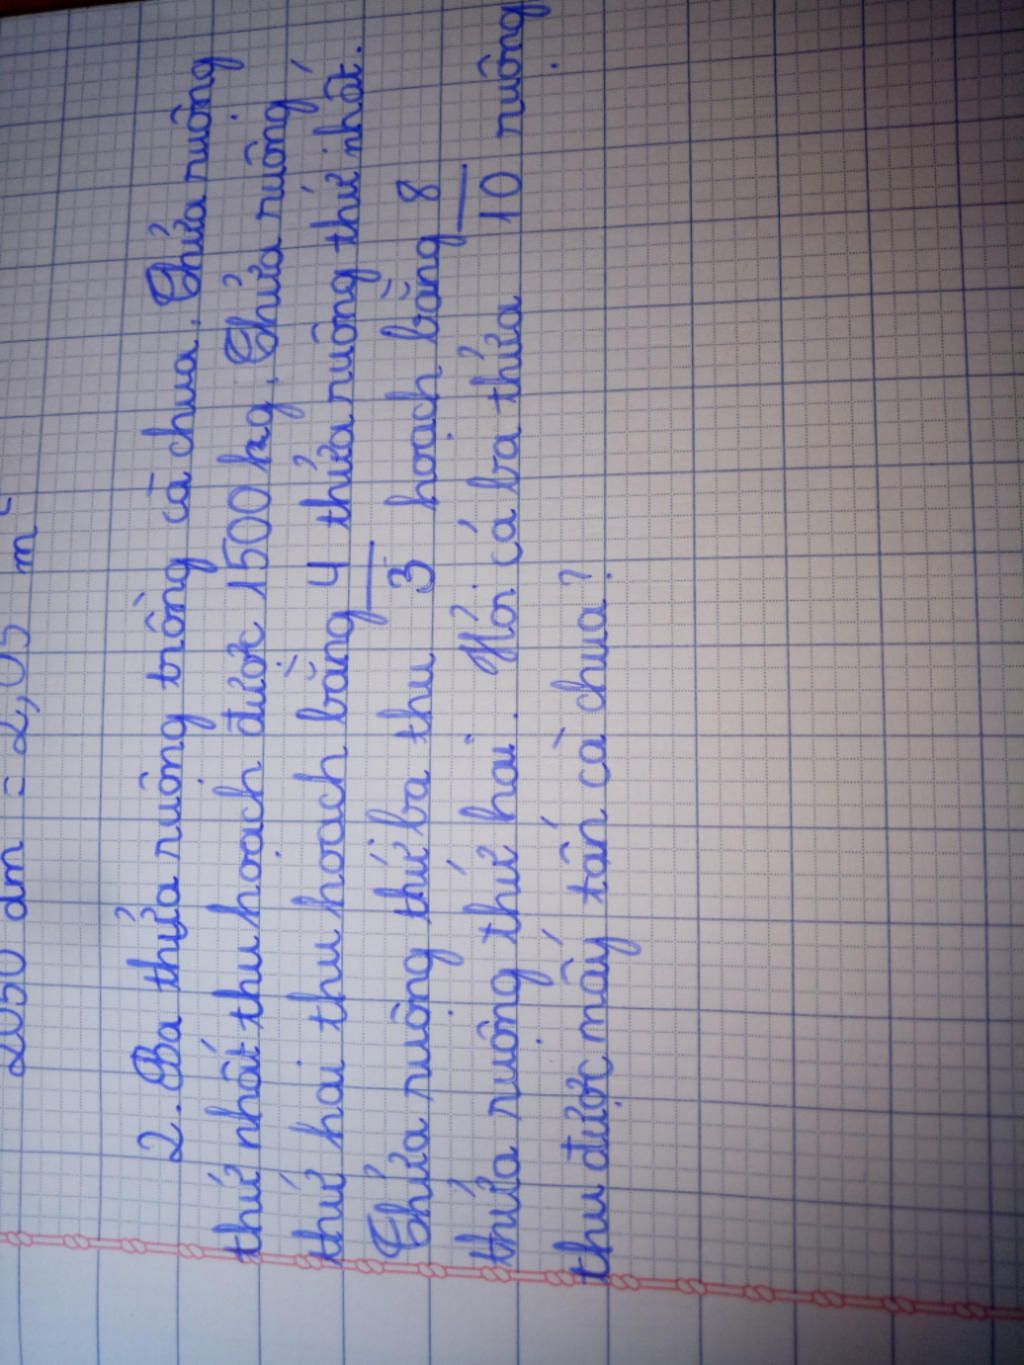 2050 dm² = 2,05 m²
2. Ba thửa ruộng trồng cà chua. Thửa ruộng
thứ nhất thu hoạch được 1500 kg. Thửa ruộng
thứ hai thu hoạch bằng 4/3 thửa ruộng thứ nhất.
Thửa ruộng thứ ba thu hoạch bằng 8/10
thửa ruộng thứ hai. Hỏi cả ba thửa ruộng
thu được mấy tấn cà chua?